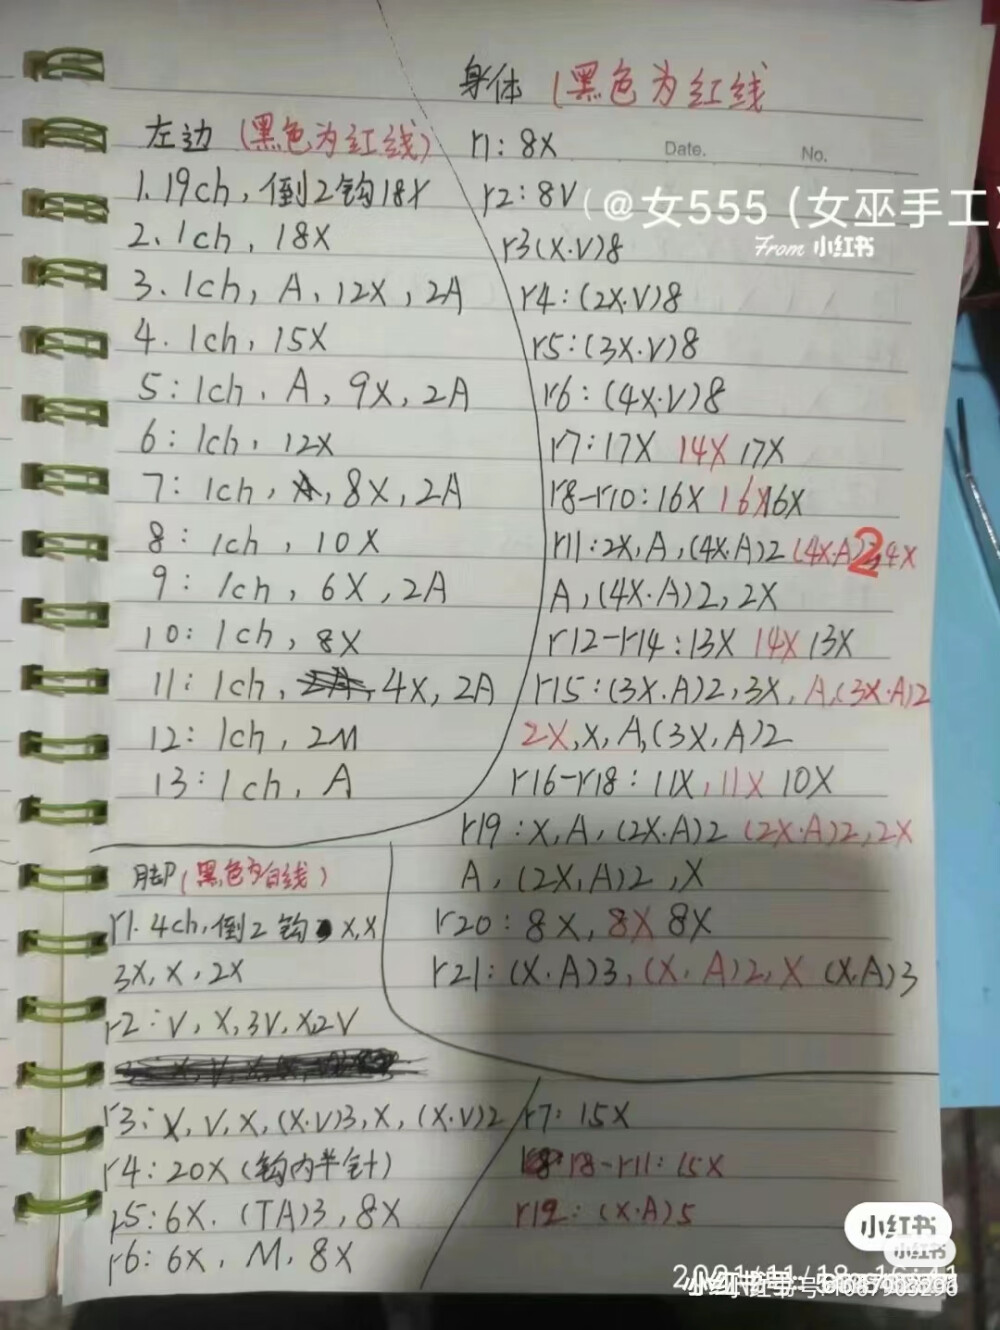 身体 (黑色为红线
左边 (黑色为红线)
1. 19ch, 倒2钩18X
2. 1ch, 18X
3. 1ch, A, 12X, 2A
4. 1ch, 15X
5: 1ch, A, 9X, 2A
6: 1ch, 12X
7: 1ch, 8X, 2A
8: 1ch, 10X
9: 1ch, 6X, 2A
10: 1ch, 8X
11: 1ch, 4X, 2A
12: 1ch, 2M
13: 1ch, A
r1: 8X
Date. No.
r2: 8V
(@女555 (女巫手工)
From 小红书
r3(X·V)8
r4: (2X·V)8
r5: (3X·V)8
r6: (4X·V)8
r7: 17X 14X 17X
r8-r10: 16X 16X 16X
r11: 2X, A, (4X·A)2 (4X·A)2, 4X
A, (4X·A)2, 2X
r12-r14: 13X 14X 13X
r15: (3X·A)2, 3X, A, (3X·A)2
2X, X, A, (3X, A)2
r16-r18: 11X, 11X 10X
r19: X, A, (2X·A)2 (2X·A)2, 2X
A, (2X, A)2, X
r20: 8X, 8X 8X
r21: (X·A)3, (X, A)2, X (X, A)3
脚 (黑色为白线)
r1. 4ch, 倒2钩 X, X
3X, X, 2X
r2: V, X, 3V, X, 2V
r3: X, V, X, (X·V)3, X, (X·V)2
r4: 20X (钩内半针)
r5: 6X, (TA)3, 8X
r6: 6X, M, 8X
r7: 15X
r8-r11: 15X
r12: (X·A)5
小红书
小红书
2021/11/18 16:41
小红书号: